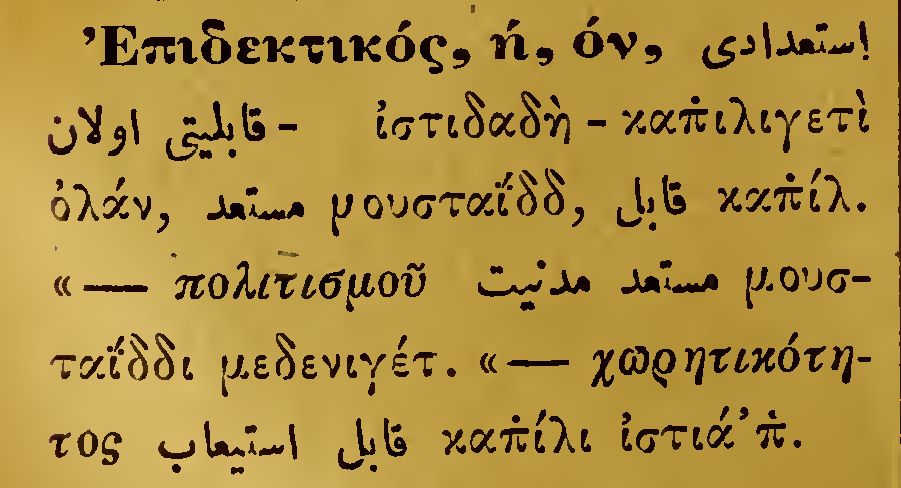 Ἐπιδεκτικός, ή, όν, استعدادی
قابلیتی اولان - ἰστιδαδὴ - καπ̇ιλιγετὶ
ὀλάν, مستعد μουσταΐδδ, قابل καπ̇ίλ.
«— πολιτισμοῦ مستعد مدنیت μουσ-
ταΐδδι μεδενιγέτ. «— χωρητικότη-
τος قابل استیعاب καπ̇ίλι ἰστιά’π̇.